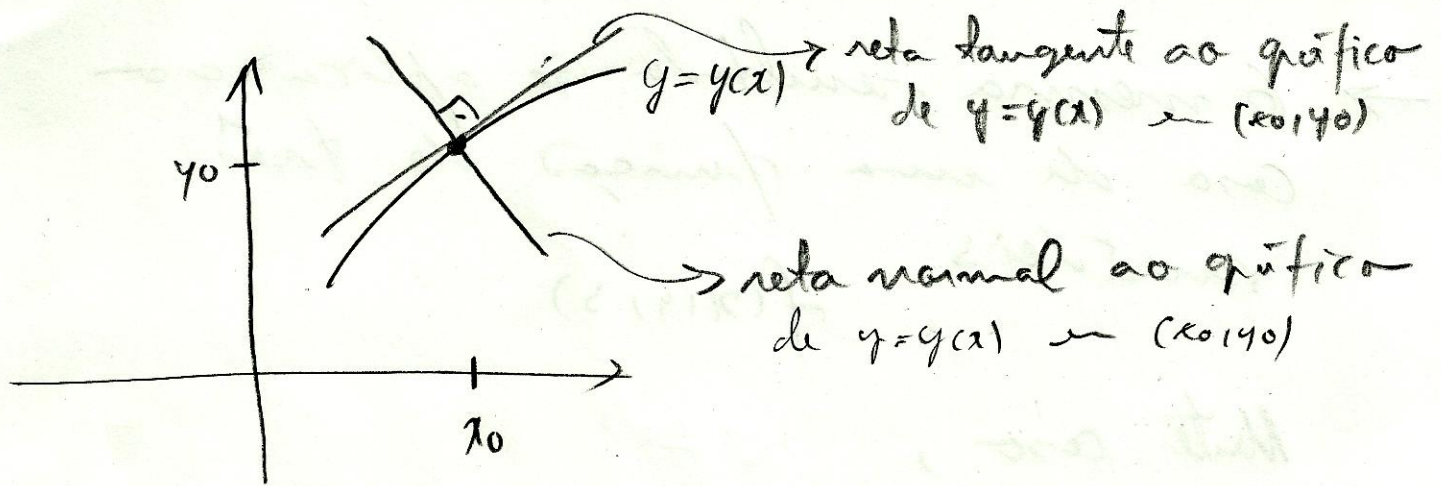 y=y(x)
reta tangente ao gráfico
de y=y(x) em (x0,y0)
y0
reta normal ao gráfico
de y=y(x) em (x0,y0)
x0